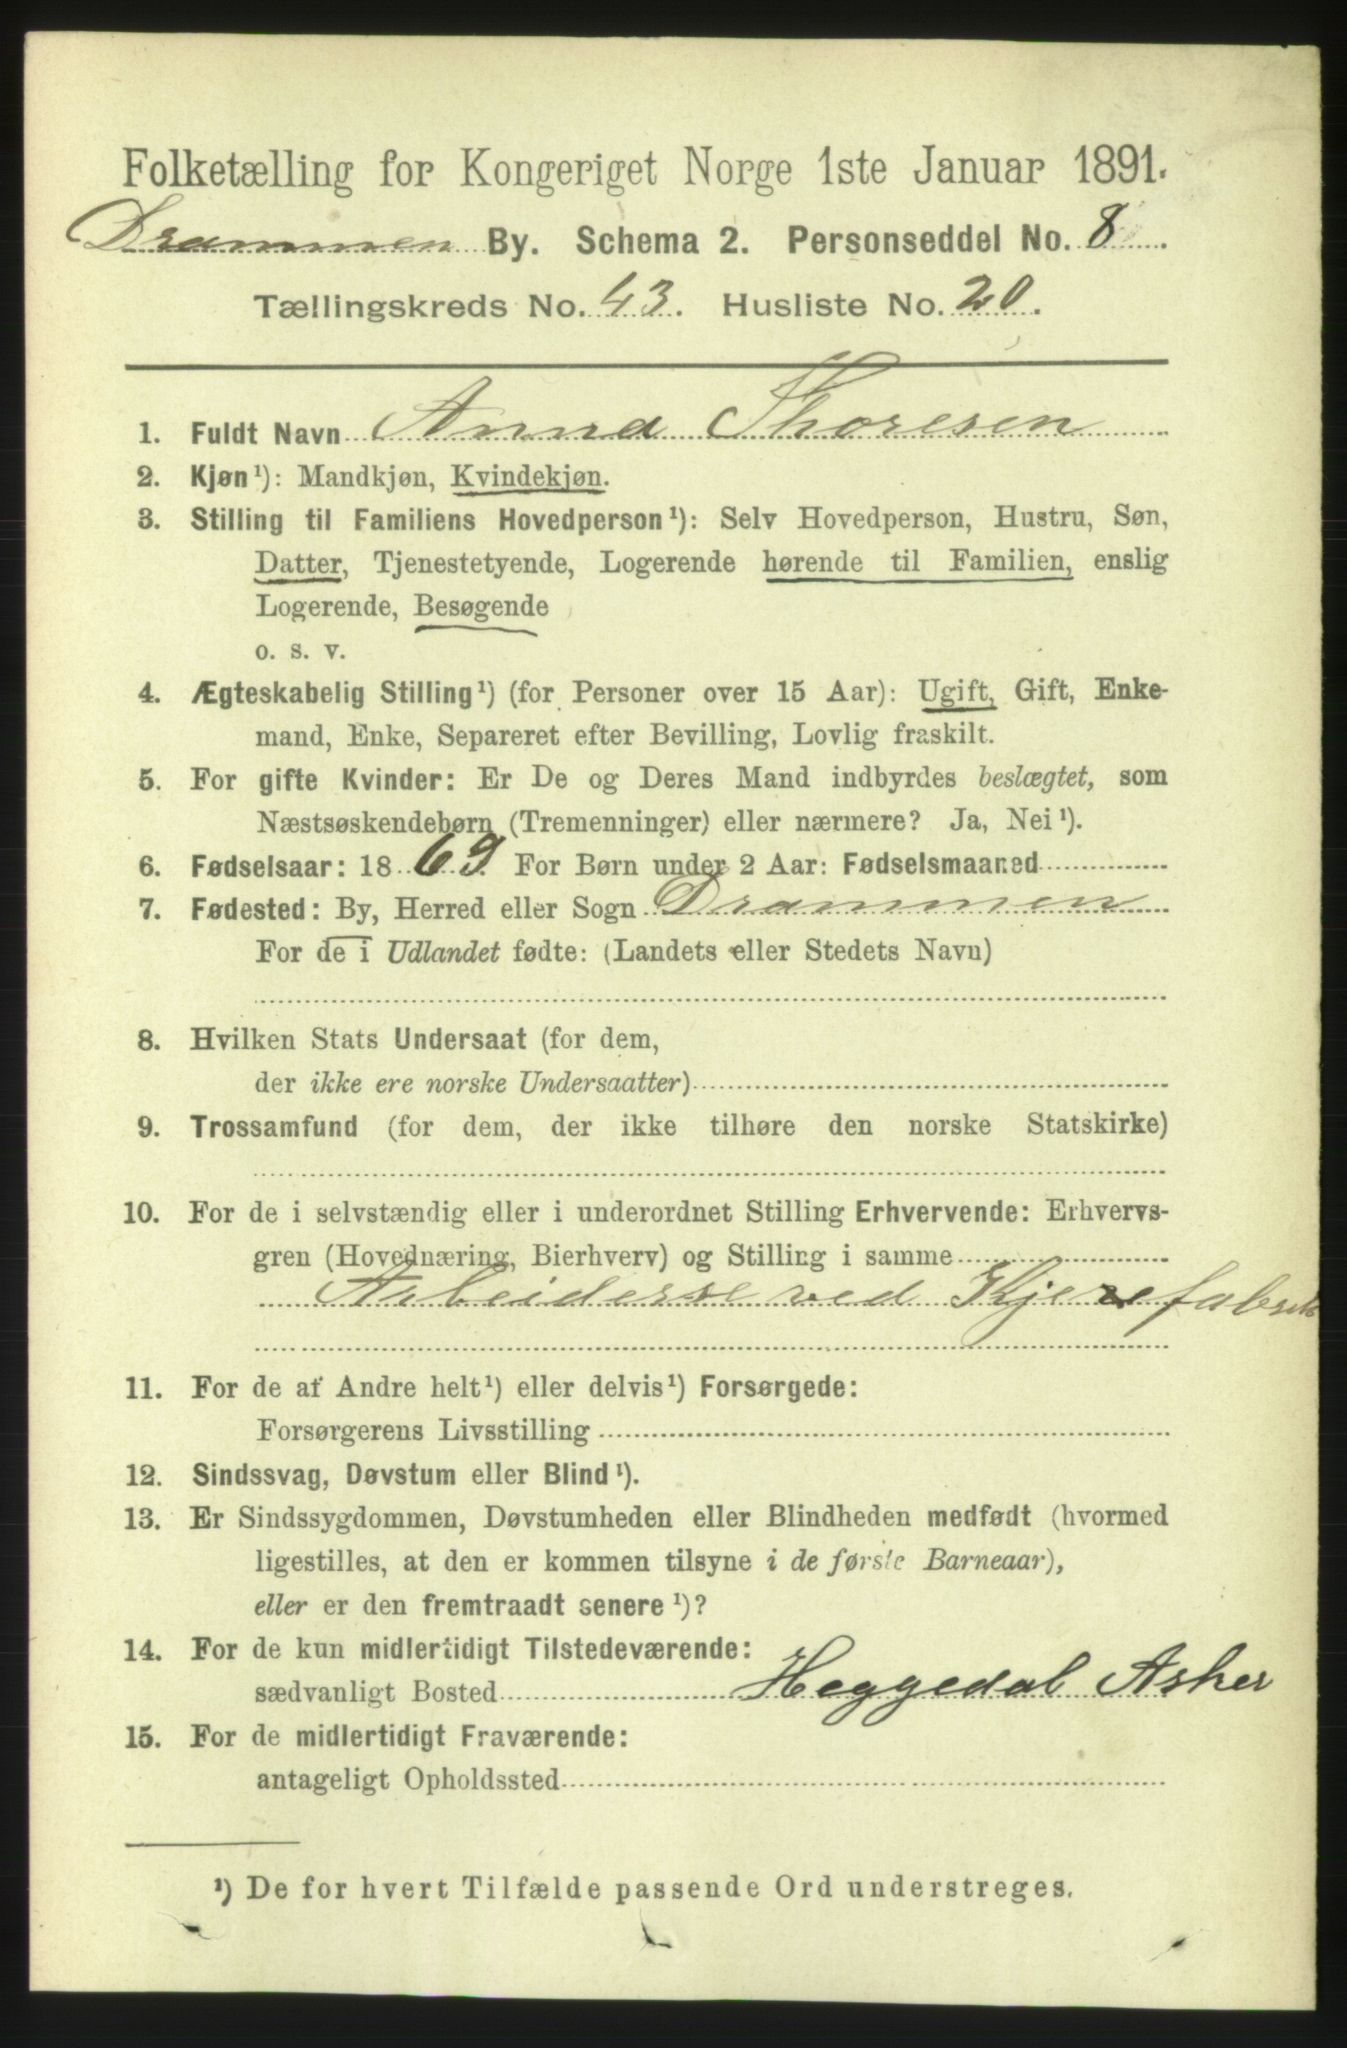 Folketælling for Kongeriget Norge 1ste Januar 1891.
Drammen By. Schema 2. Personseddel No. 8.
Tællingskreds No. 43. Husliste No. 20.
1. Fuldt Navn Anna Thoresen
2. Kjøn¹): Mandkjøn, Kvindekjøn.
3. Stilling til Familiens Hovedperson¹): Selv Hovedperson, Hustru, Søn,
Datter, Tjenestetyende, Logerende hørende til Familien, enslig
Logerende, Besøgende
o. s. v.
4. Ægteskabelig Stilling¹) (for Personer over 15 Aar): Ugift, Gift, Enke-
mand, Enke, Separeret efter Bevilling, Lovlig fraskilt.
5. For gifte Kvinder: Er De og Deres Mand indbyrdes beslægtet, som
Næstsøskendebørn (Tremenninger) eller nærmere? Ja, Nei¹).
6. Fødselsaar: 1869. For Børn under 2 Aar: Fødselsmaaned
7. Fødested: By, Herred eller Sogn Drammen
For de i Udlandet fødte: (Landets eller Stedets Navn)
8. Hvilken Stats Undersaat (for dem,
der ikke ere norske Undersaatter)
9. Trossamfund (for dem, der ikke tilhøre den norske Statskirke)
10. For de i selvstændig eller i underordnet Stilling Erhvervende: Erhvervs-
gren (Hovednæring, Bierhverv) og Stilling i samme
Arbeiderske ved
11. For de af Andre helt¹) eller delvis¹) Forsørgede:
Forsørgerens Livsstilling
12. Sindssvag, Døvstum eller Blind¹).
13. Er Sindssygdommen, Døvstumheden eller Blindheden medfødt (hvormed
ligestilles, at den er kommen tilsyne i de første Barneaar),
eller er den fremtraadt senere¹)?
14. For de kun midlertidigt Tilstedeværende:
sædvanligt Bosted Heggedal Asker
15. For de midlertidigt Fraværende:
antageligt Opholdssted
¹) De for hvert Tilfælde passende Ord understreges.